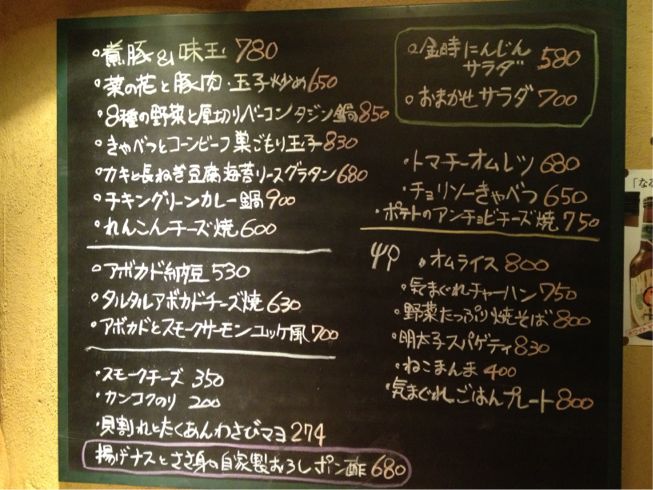 ・煮豚&味玉 780
・菜の花と豚肉・玉子炒め650
・8種の野菜と厚切りベーコンタジン鍋850
・きゃべつとコーンビーフ巣ごもり玉子830
・カキと長ねぎ豆腐海苔ソースグラタン680
・チキングリーンカレー鍋900
・れんこんチーズ焼600
・アボカド納豆530
・タルタルアボカドチーズ焼630
・アボカドとスモークサーモンユッケ風700
・スモークチーズ 350
・カンコクのり 200
・貝割れとたくあんわさびマヨ274
揚げナスとささ身の自家製おろしポン酢680
・金時にんじん
サラダ 580
・おまかせサラダ700
・トマチーオムレツ680
・チョリソーきゃべつ650
・ポテトのアンチョビチーズ焼750
・オムライス800
・気まぐれチャーハン750
・野菜たっぷり焼そば800
・明太子スパゲティ830
・ねこまんま400
・気まぐれごはんプレート800